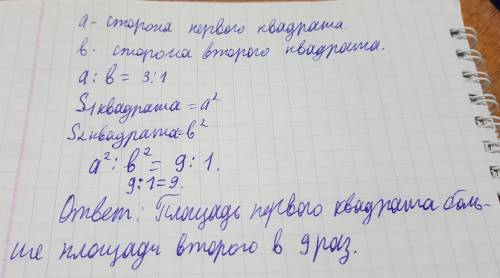 а - сторона первого квадрата.
в - сторона второго квадрата.
а : в = 3:1
S₁квадрата = а²
S₂квадрата = в²
а² : в² = 9 : 1.
9:1=9.
Ответ: Площадь первого квадрата боль-
ше площади второго в 9 раз.